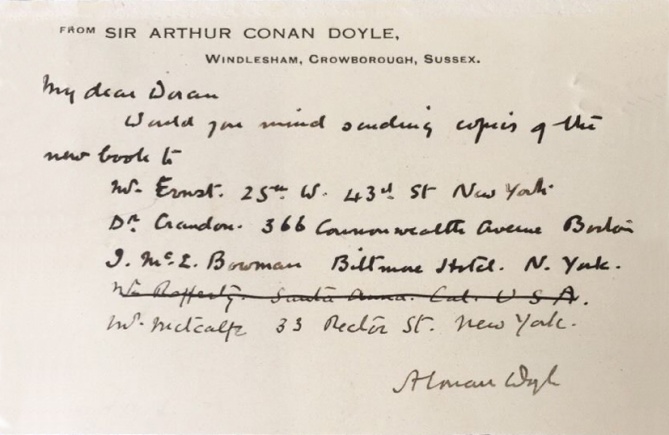 FROM SIR ARTHUR CONAN DOYLE,
WINDLESHAM, CROWBOROUGH, SUSSEX.
My dear Doran
Would you mind sending copies of the
new book to
Mr. Ernst. 25 W. 43d St New York.
Dr Crandon. 366 Commonwealth Avenue Boston
J. McE. Bowman Biltmore Hotel. N. York.
Mr Rafferty. Santa Anna. Cal. U S A.
Mr. Metcalfe 33 Rector St. New York.
A Conan Doyle